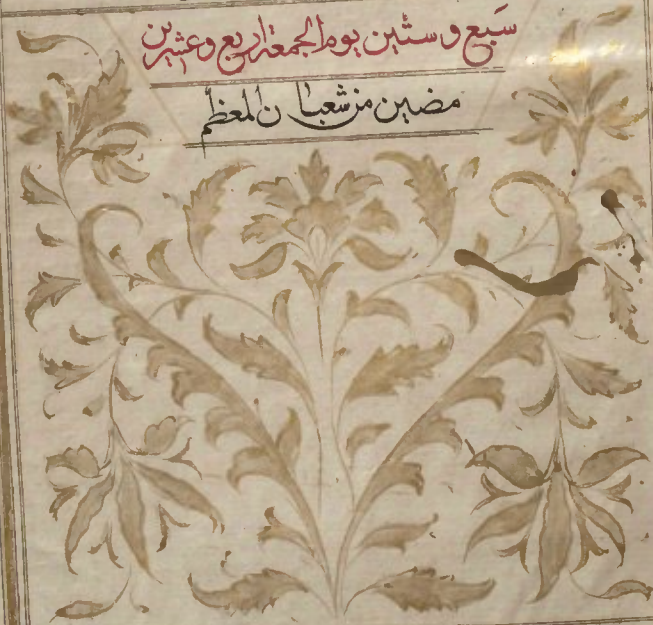 سَبع وستين يوم الجمعة اربع وعشرين
مضين من شعبان المعظم